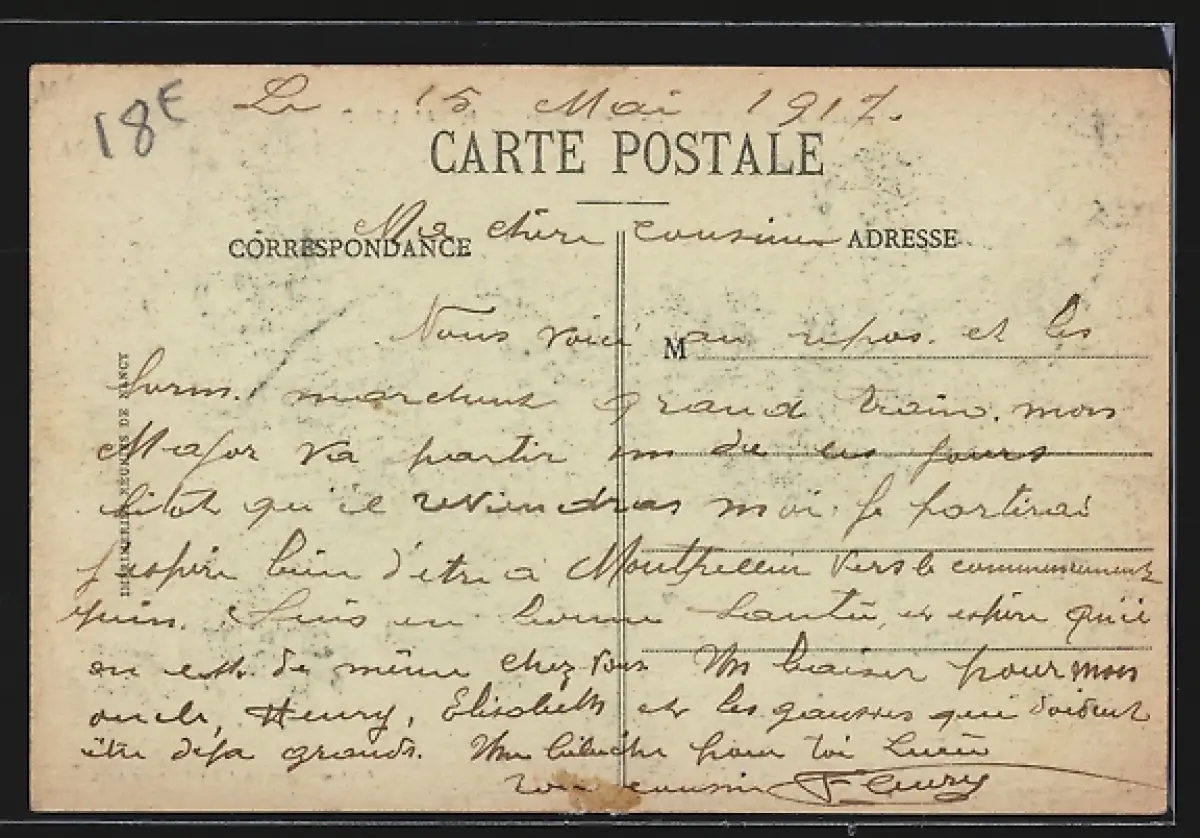 18E
Le 15 Mai 1917.
CARTE POSTALE
Ma chère cousine
CORRESPONDANCE
ADRESSE
Nous voici au repos. et les
M
perm. marchent grand train. mon
Major va partir un de ces jours
sitot qu'il reviendras moi je partirai
j'espère bien d'etre a Montpellier vers le commencement
juin. Suis en bonne santé, et espère qu'il
en est de même chez vous Un baiser pour mon
oncle, Henry, Elisabeth et les gausses qui doivent
être déja grands. Une pour toi
ton cousin Fleury
IMPRIMERIES REUNIES DE NANCY